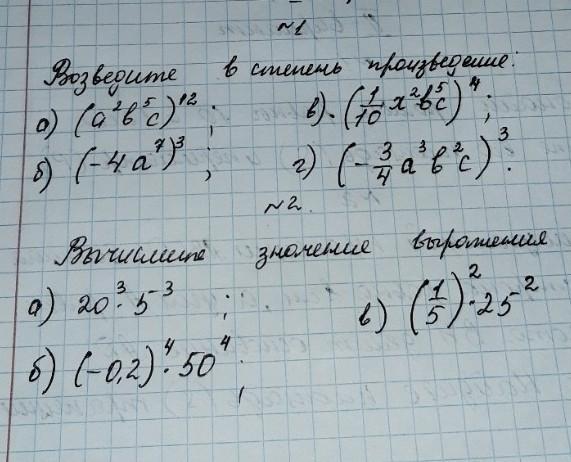 №1
Возведите в степень произведение:
а) (a²b⁵c)¹²; в) (1/10 x²b⁵c)⁴;
б) (-4a⁷)³; г) (-3/4 a³b²c)³.
№2.
Вычислите значение выражения
а) 20³·5³; в) (1/5)²·25²
б) (-0,2)⁴·50⁴;